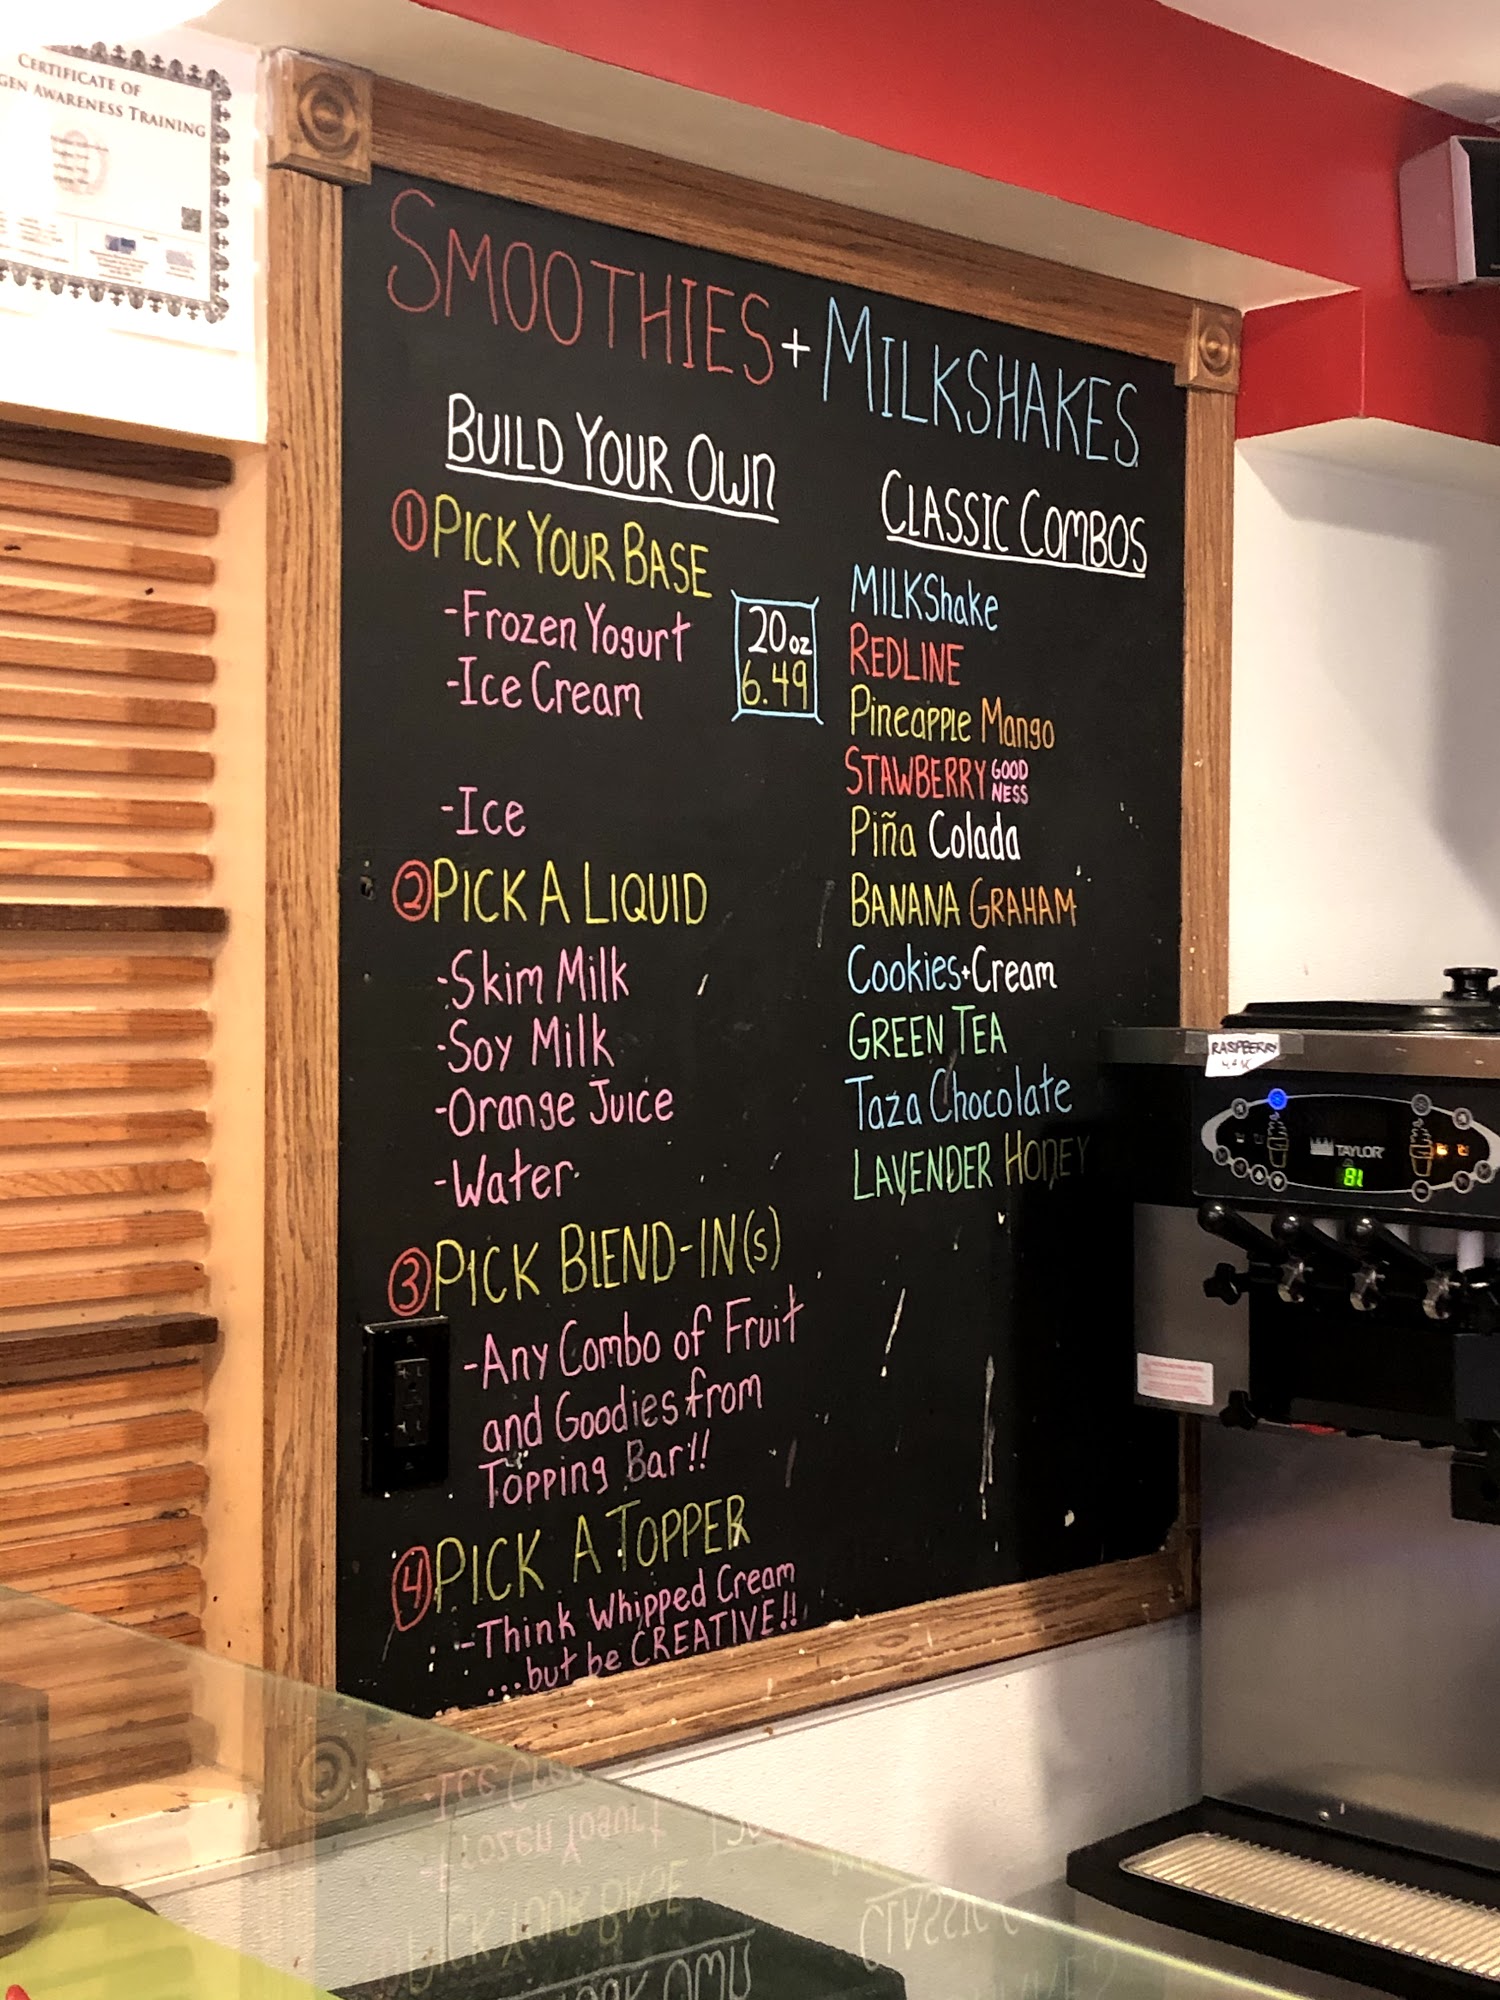 CERTIFICATE OF
GEN AWARENESS TRAINING
SMOOTHIES + MILKSHAKES
BUILD YOUR OWN
① PICK YOUR BASE
-Frozen Yogurt
-Ice Cream
-Ice
20oz
6.49
② PICK A LIQUID
-Skim Milk
-Soy Milk
-Orange Juice
-Water
③ PICK BLEND-IN(s)
-Any Combo of Fruit
and Goodies from
Topping Bar!!
④ PICK A TOPPER
-Think Whipped Cream
...but be CREATIVE!!
CLASSIC COMBOS
MILKShake
REDLINE
Pineapple Mango
STAWBERRY GOOD
NESS
Piña Colada
BANANA GRAHAM
Cookies+Cream
GREEN TEA
Taza Chocolate
LAVENDER HONEY
RASPBERRY
TAYLOR